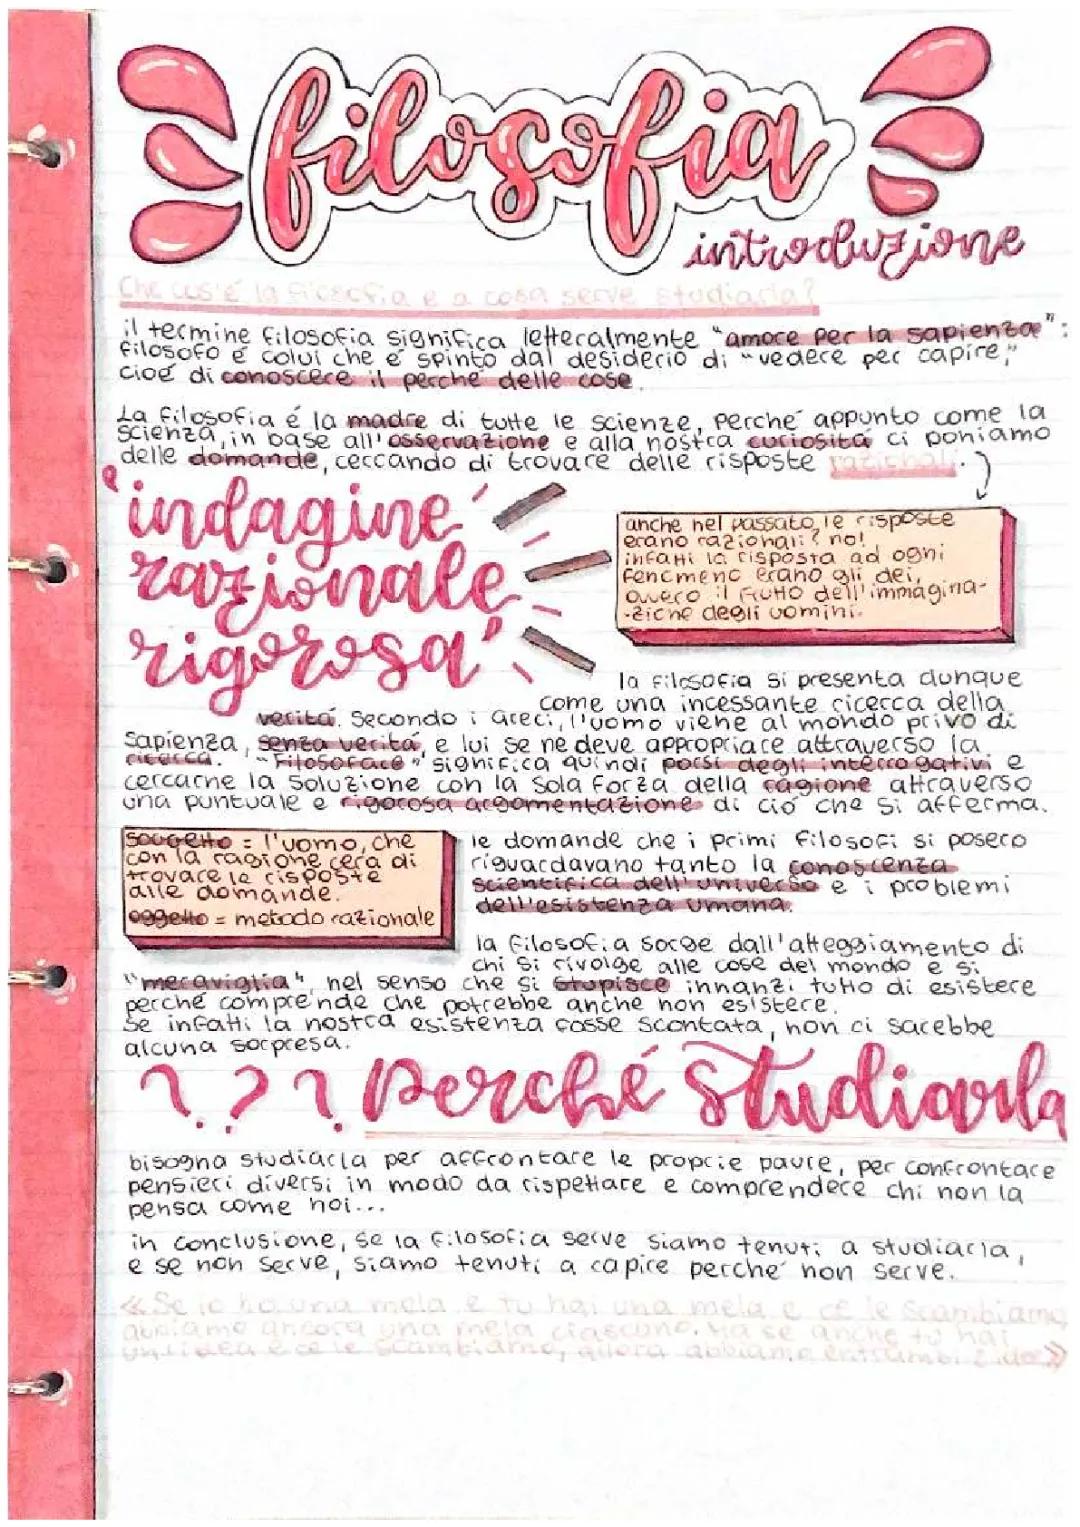 filosofia
introduzione
Che cos'è la filosofia e a cosa serve studiarla?
il termine filosofia significa letteralmente "amore per la sapienza":
filosofo é colui che é spinto dal desiderio di "vedere per capire,"
cioé di conoscere il perché delle cose.
La filosofia é la madre di tutte le scienze, perché appunto come la
scienza, in base all'osservazione e alla nostra curiositá ci poniamo
delle domande, cercando di trovare delle risposte razionali.
"indagine
razionale
rigorosa"
anche nel passato, le risposte
erano razionali? no!
infatti la risposta ad ogni
fenomeno erano gli dei,
ovvero il frutto dell'immagina-
-zione degli uomini.
la filosofia si presenta dunque
come una incessante ricerca della
veritá. Secondo i Greci, l'uomo viene al mondo privo di
sapienza, senza veritá, e lui se ne deve appropriare attraverso la
ricerca. "Filosofare" significa quindi porsi degli interrogativi e
cercarne la soluzione con la sola forza della ragione attraverso
una puntuale e rigorosa argomentazione di ció che si afferma.
soggetto = l'uomo, che
con la ragione cera di
trovare le risposte
alle domande.
oggetto = metodo razionale
le domande che i primi filosofi si posero
riguardavano tanto la conoscenza
scientifica dell'universo e i problemi
dell'esistenza umana.
la filosofia sorge dall'atteggiamento di
chi si rivolge alle cose del mondo e si
"meraviglia", nel senso che si stupisce innanzi tutto di esistere
perché comprende che potrebbe anche non esistere.
Se infatti la nostra esistenza fosse scontata, non ci sarebbe
alcuna sorpresa.
??? perché studiarla
bisogna studiarla per affrontare le proprie paure, per confrontare
pensieri diversi in modo da rispettare e comprendere chi non la
pensa come noi...
in conclusione, se la filosofia serve siamo tenuti a studiarla,
e se non serve, siamo tenuti a capire perché non serve.
«Se io ho una mela e tu hai una mela e ce le scambiamo
abbiamo ancora una mela ciascuno. Ma se anche tu hai
un'idea e ce le scambiamo, allora abbiamo entrambi 2 idee»